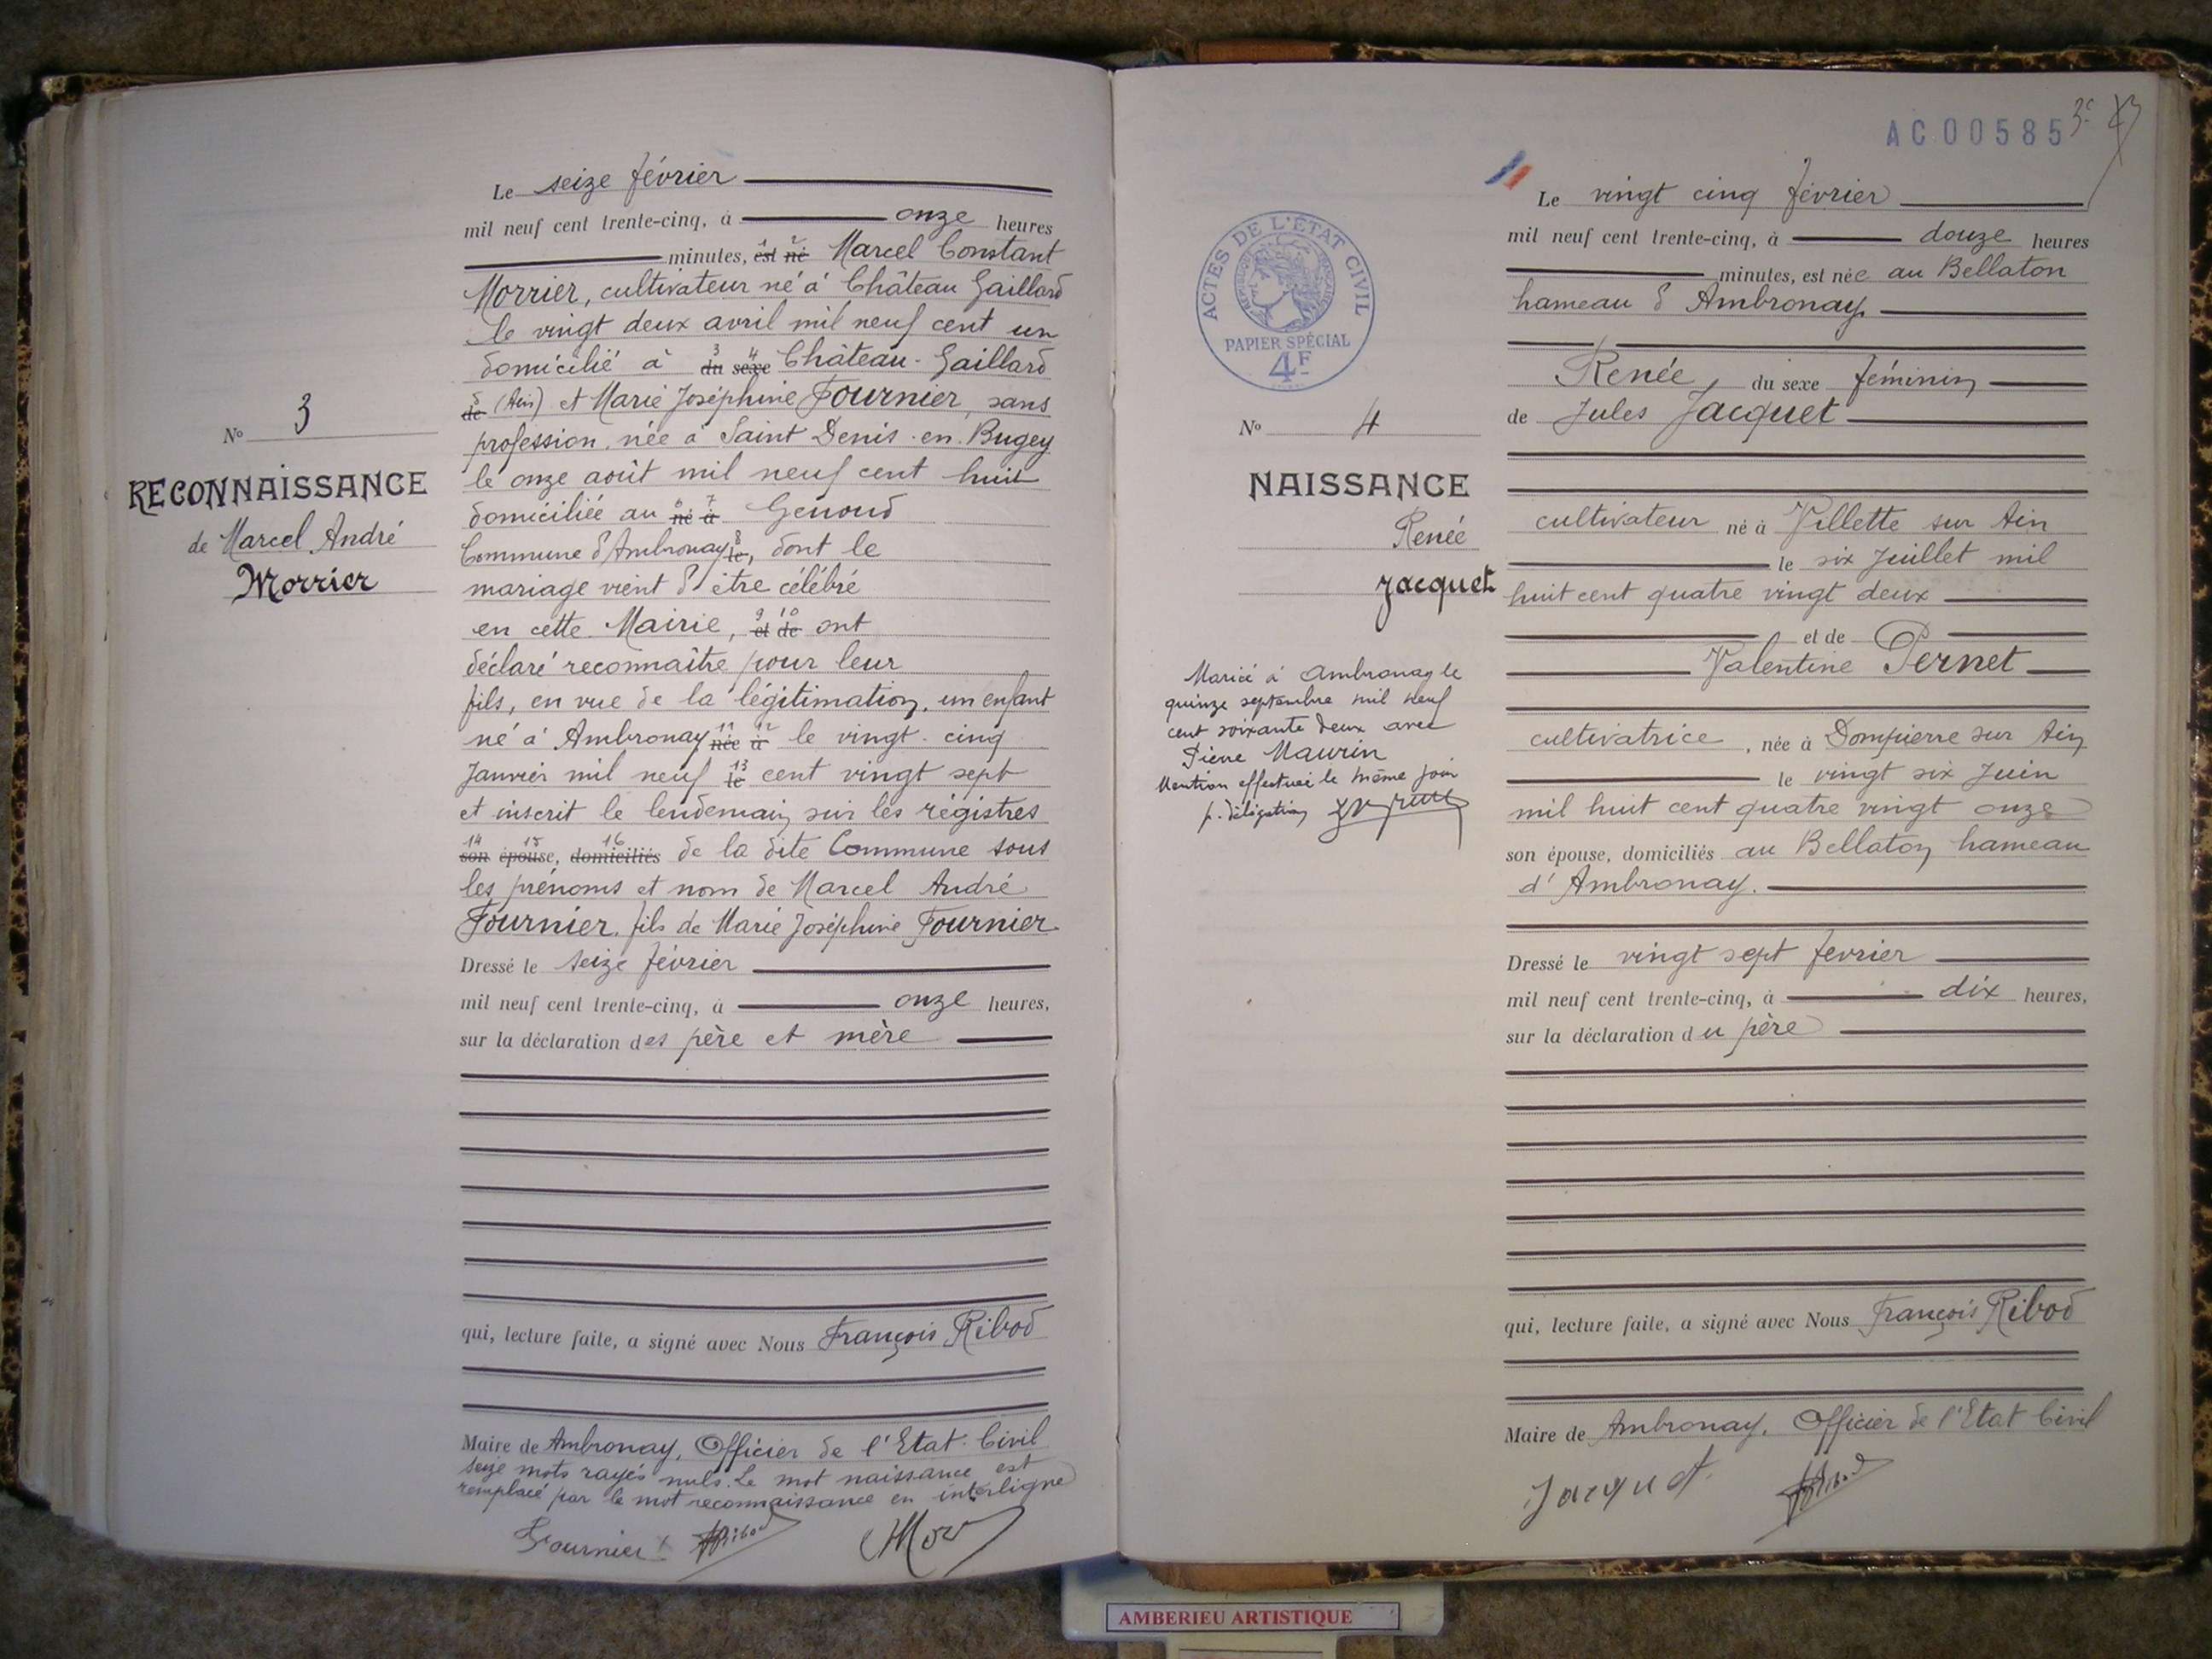 Le seize février
mil neuf cent trente-cinq, à onze heures
minutes, est né Marcel Constant
Morrier, cultivateur né à Château Gaillard
le vingt deux avril mil neuf cent un
domicilié à du sexe Château-Gaillard
de (Ain) et Marie Joséphine Fournier, sans
profession, née à Saint Denis-en-Bugey
le onze août mil neuf cent huit
domiciliée au né à Genoud
Commune d'Ambronay le, dont le
mariage vient d'être célébré
en cette Mairie, et de ont
déclaré reconnaître pour leur
fils, en vue de la légitimation, un enfant
né à Ambronay née à le vingt-cinq
Janvier mil neuf le cent vingt sept
et inscrit le lendemain sur les régistres
son épouse, domiciliés de la dite Commune sous
les prénoms et nom de Marcel André
Fournier, fils de Marie Joséphine Fournier
Dressé le seize février
mil neuf cent trente-cinq, à onze heures,
sur la déclaration des père et mère
qui, lecture faite, a signé avec Nous François Ribod
Maire de Ambronay, Officier de l'Etat Civil
seize mots rayés nuls. Le mot naissance est
remplacé par le mot reconnaissance en interligne
Fournier Ribod
No 3
RECONNAISSANCE
de Marcel André
Morrier
AC00585
ACTES DE L'ETAT CIVIL
PAPIER SPÉCIAL
4F
No 4
NAISSANCE
Renée
Jacquet
Mariée à Ambronay le
quinze septembre mil neuf
cent soixante deux avec
Pierre Maurin
Mention effectuée le même jour
p. délégation
Le vingt cinq février
mil neuf cent trente-cinq, à douze heures
minutes, est née au Bellaton
hameau d'Ambronay
Renée, du sexe féminin
de Jules Jacquet
cultivateur né à Villette sur Ain
le six Juillet mil
huit cent quatre vingt deux
et de P
Valentine Pernet
cultivatrice, née à Dompierre sur Ain
le vingt six Juin
mil huit cent quatre vingt onze
son épouse, domiciliés au Bellaton hameau
d'Ambronay.
Dressé le vingt sept fevrier
mil neuf cent trente-cinq, à dix heures,
sur la déclaration du père
qui, lecture faite, a signé avec Nous François Ribod
Maire de Ambronay, Officier de l'Etat Civil
Jacquet Ribod
AMBERIEU ARTISTIQUE